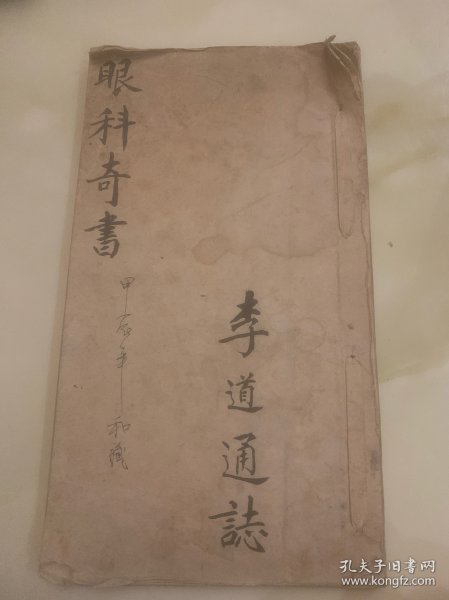 眼科奇書
甲辰年 和藏
李道通誌
孔夫子旧书网
www.kongfz.com